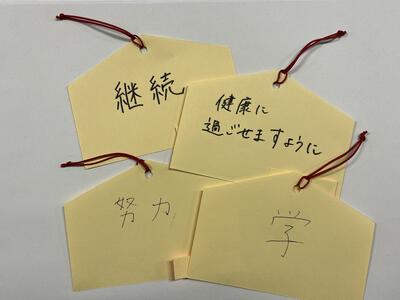 継続
健康に
過ごせますように
努力
学